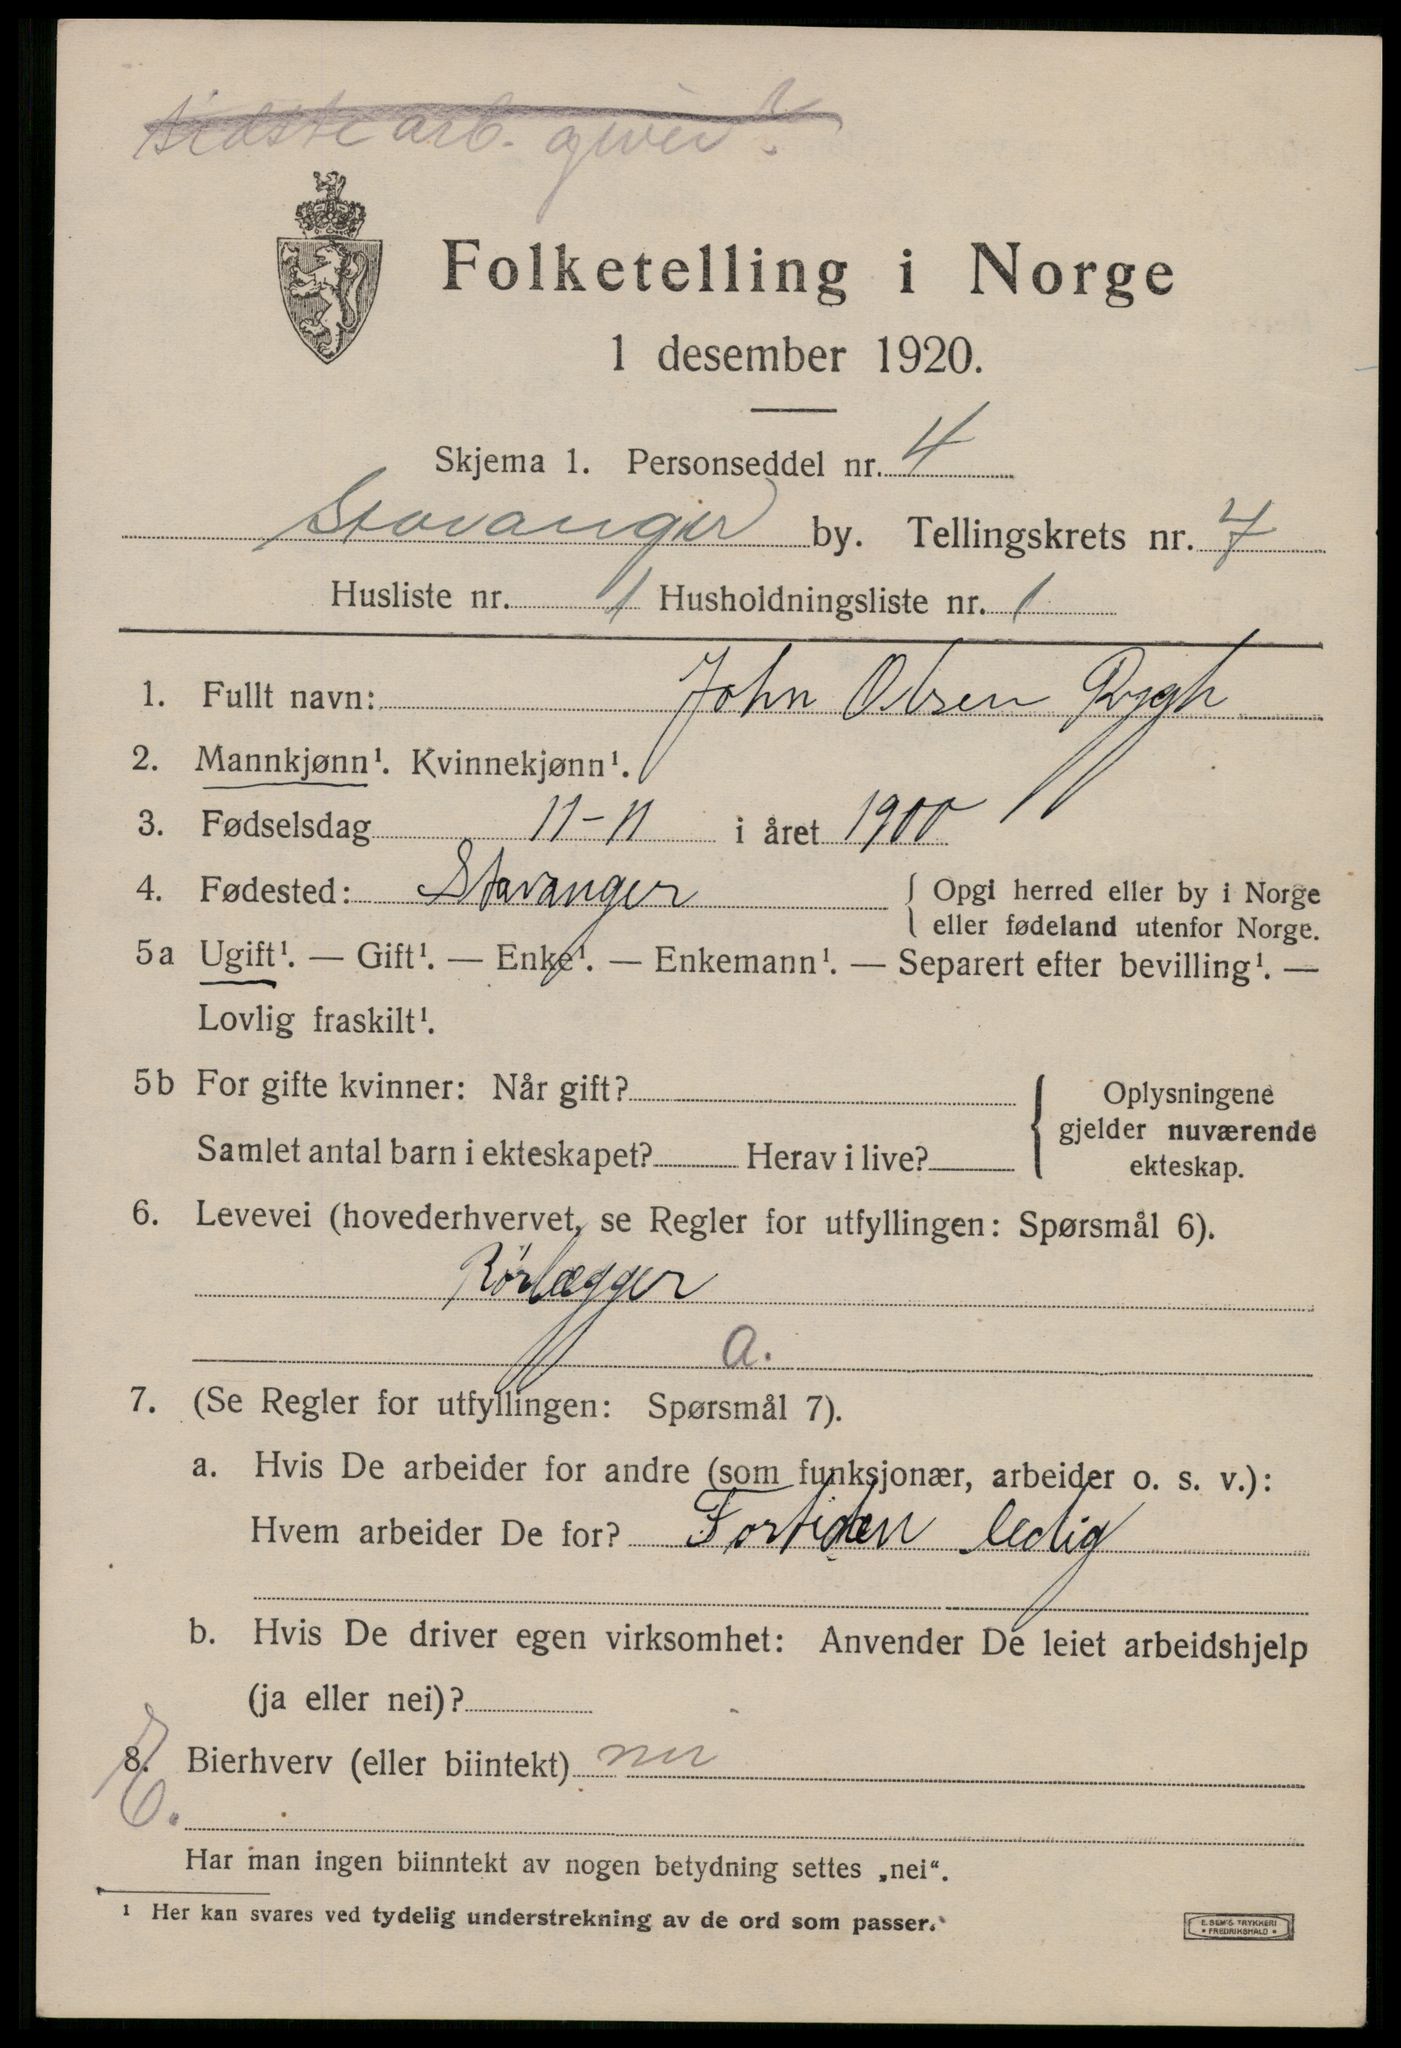 sidste arb. giver?
Folketelling i Norge
1 desember 1920.
Skjema 1. Personseddel nr. 4
Stavanger by. Tellingskrets nr. 7
Husliste nr. 1 Husholdningsliste nr. 1
1. Fullt navn: John Olsen Rygh
2. Mannkjønn¹. Kvinnekjønn¹.
3. Fødselsdag 11-11 i året 1900
4. Fødested: Stavanger { Opgi herred eller by i Norge
eller fødeland utenfor Norge.
5a Ugift¹. — Gift¹. — Enke¹. — Enkemann¹. — Separert efter bevilling¹. —
Lovlig fraskilt¹.
5b For gifte kvinner: Når gift?
Samlet antal barn i ekteskapet? Herav i live?
{ Oplysningene
gjelder nuværende
ekteskap.
6. Levevei (hovederhvervet, se Regler for utfyllingen: Spørsmål 6).
Rørlægger
a.
7. (Se Regler for utfyllingen: Spørsmål 7).
a. Hvis De arbeider for andre (som funksjonær, arbeider o. s. v.):
Hvem arbeider De for? Fortiden ledig
b. Hvis De driver egen virksomhet: Anvender De leiet arbeidshjelp
(ja eller nei)?
8. Bierhverv (eller biintekt) nei
Har man ingen biinntekt av nogen betydning settes „nei“.
1 Her kan svares ved tydelig understrekning av de ord som passer.
E. SEM'S TRYKKERI
* FREDRIKSHALD *